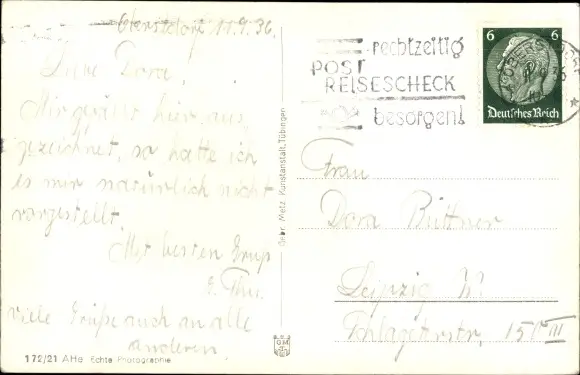 Oberstdorf 11.9.36.
Liebe Dora!
Mir gefällt hier aus-
gezeichnet, so hatte ich
es mir natürlich nicht
vorgestellt.
Mit besten Gruß
E. Thu.
viele Grüße auch an alle
anderen.
172/21 AHe Echte Photographie
Gebr. Metz Kunstanstalt, Tübingen
GMT
rechtzeitig
POST
REISESCHECK
besorgen!
6 6
Deutsches Reich
OBERSTDORF
Frau
Dora Büttner
Leipzig W.
Schlageterstr. 15 III